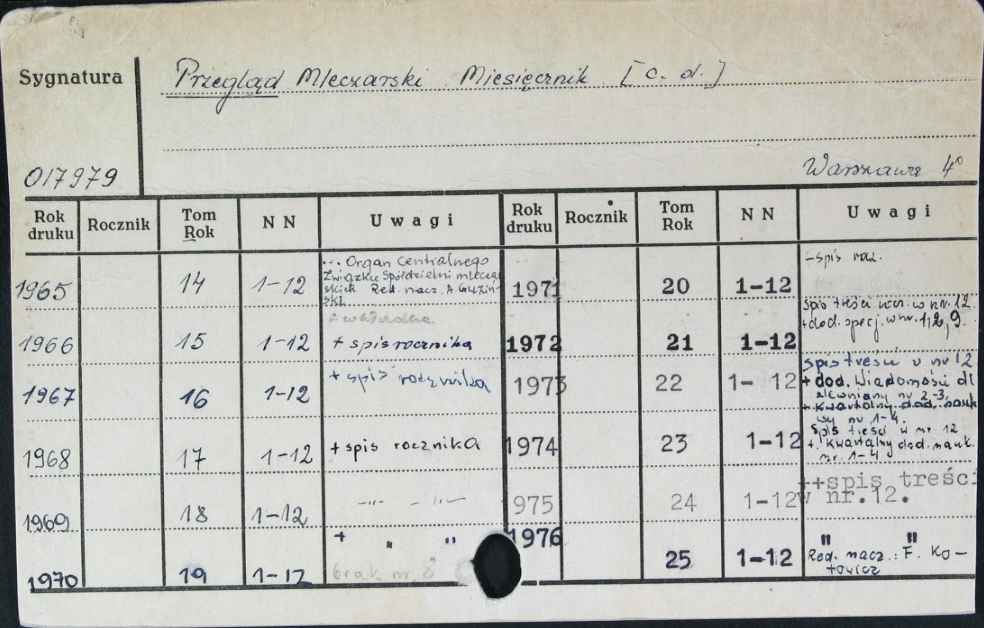 Sygnatura
Przegląd Mleczarski. Miesięcznik [c. d.]
017979
Warszawa 4°
Rok druku Rocznik Tom Rok N N Uwagi Rok druku Rocznik Tom Rok N N Uwagi
1965 14 1-12 ... Organ Centralnego
Związku Spółdzielni mleczar
skich Red. nacz. A
1966 15 1-12
+ spis rocznika
1967 16 1-12 + spis rocznika
1968 17 1-12 + spis rocznika
1969 18 1-12 -"- -"-
1970 19 1-12 + " "
brak nr 8
1971 20 1-12 - spis rocz.
1972 21 1-12 spis treści w nr. 12
+ dod. specj. w nr. 1, 2, 9.
1973 22 1- 12 spis treści w nr 12
+ dod. Wiadomości dl
nr 2-3,
+ kwartalny dod. nauk
wy nr 1-4.
1974 23 1-12 spis treści w nr. 12
+ kwartalny dod. nauk.
nr. 1-4
975 24 1-12 ++spis treści
w nr.12.
1976 25 1-12 " "
Red. nacz.: F. Ko-
towicz